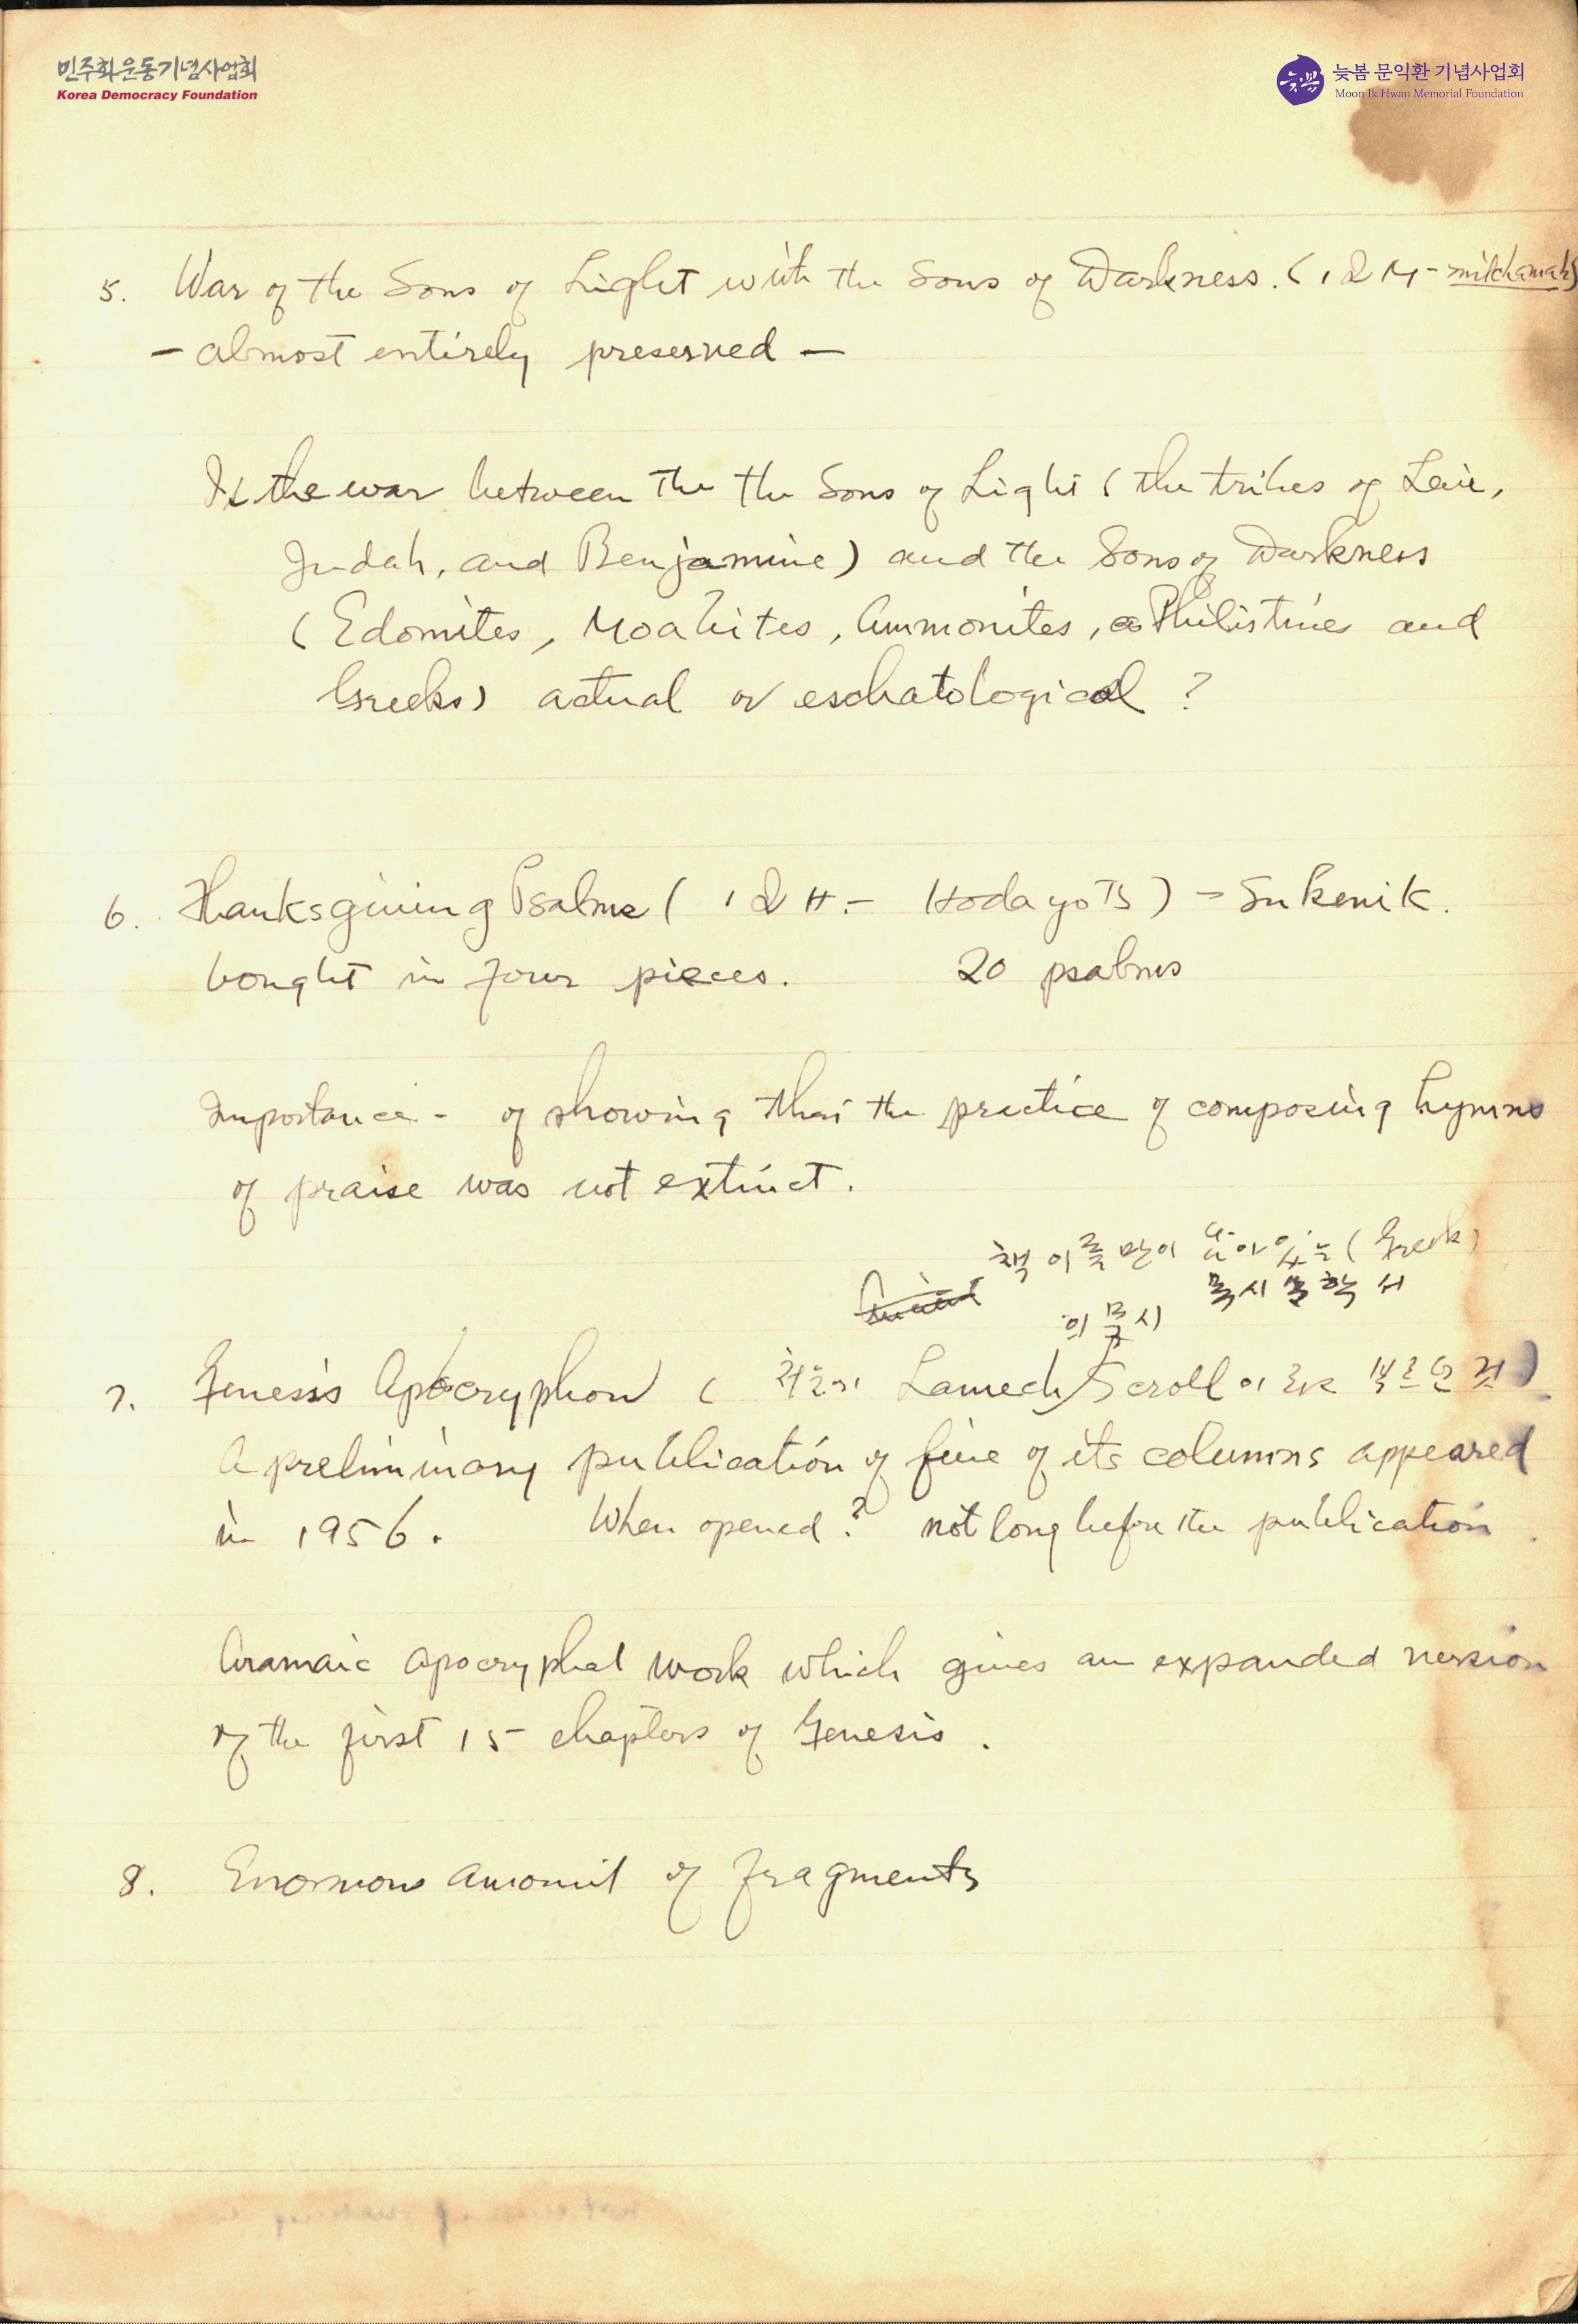 민주화운동기념사업회
Korea Democracy Foundation
늦봄
늦봄 문익환 기념사업회
Moon Ik Hwan Memorial Foundation
5. War of the Sons of Light with the Sons of Darkness. (1QM - milchamah)
- almost entirely preserved -
Is the war between the the Sons of Light (the tribes of Levi,
Judah, and Benjamine) and the Sons of Darkness
(Edomites, Moabites, Ammonites, Philistines and
Greeks) actual or eschatological ?
6. Thanksgiving Psalms ( 1QH - Hodayoth ) - Sukenik.
bought in four pieces. 20 psalms
Importance - of showing that the practice of composing hymns
of praise was not extinct.
책 이름만이 남아 있는 ( Greek )
묵시문학서
의 묵시
7. Genesis Apocryphon ( 처음에 Lamech Scroll 이라고 부르던 것 )
A preliminary publication of five of its columns appeared
in 1956. When opened ? not long before the publication.
Aramaic apocryphal work which gives an expanded version
of the first 15 chapters of Genesis.
8. Enormous amount of fragments